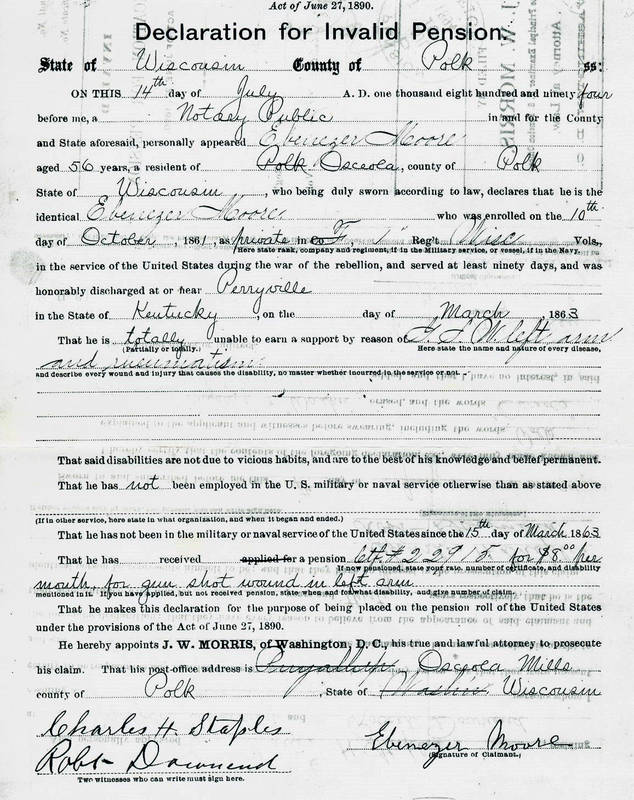 Act of June 27, 1890.
Declaration for Invalid Pension.
State of Wisconsin County of Polk ss:
ON THIS 14th day of July A. D. one thousand eight hundred and ninety four
before me, a Notary Public in and for the County
and State aforesaid, personally appeared Ebenezer Moore
aged 56 years, a resident of Polk Osceola, county of Polk
State of Wisconsin, who being duly sworn according to law, declares that he is the
identical Ebenezer Moore who was enrolled on the 10th
day of October, 1861, as private in Co F, 1" Reg't Wisc Vols.,
Here state rank, company and regiment, if in the Military service, or vessel, if in the Navy.
in the service of the United States during the war of the rebellion, and served at least ninety days, and was
honorably discharged at or near Perryville
in the State of Kentucky, on the day of March, 1863
That he is totally unable to earn a support by reason of G. S. W. left arm
(Partially or totally.) Here state the name and nature of every disease,
and rheumatism
and describe every wound and injury that causes the disability, no matter whether incurred in the service or not.
That said disabilities are not due to vicious habits, and are to the best of his knowledge and belief permanent.
That he has not been employed in the U. S. military or naval service otherwise than as stated above
(If in other service, here state in what organization, and when it began and ended.)
That he has not been in the military or naval service of the United States since the 15th day of March 1863
That he has received applied for a pension Ctf. # 22915 for $8.00 per
If now pensioned, state your rate, number of certificate, and disability
month, for gun shot wound in left arm
mentioned in it. If you have applied, but not received pension, state when and for what disability, and give number of claim.
That he makes this declaration for the purpose of being placed on the pension roll of the United States
under the provisions of the Act of June 27, 1890.
He hereby appoints J. W. MORRIS, of Washington, D. C., his true and lawful attorney to prosecute
his claim. That his post-office address is Puyallup Osceola Mills
county of Polk, State of Washin Wisconsin
Charles H. Staples
Robt Downend Ebenezer Moore
(Signature of Claimant.)
Two witnesses who can write must sign here.